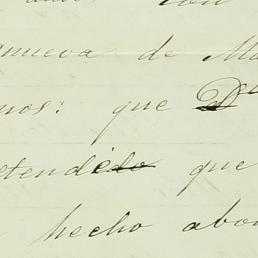 con
anueva de Ma
mos: que D
etendido que
hecho abo